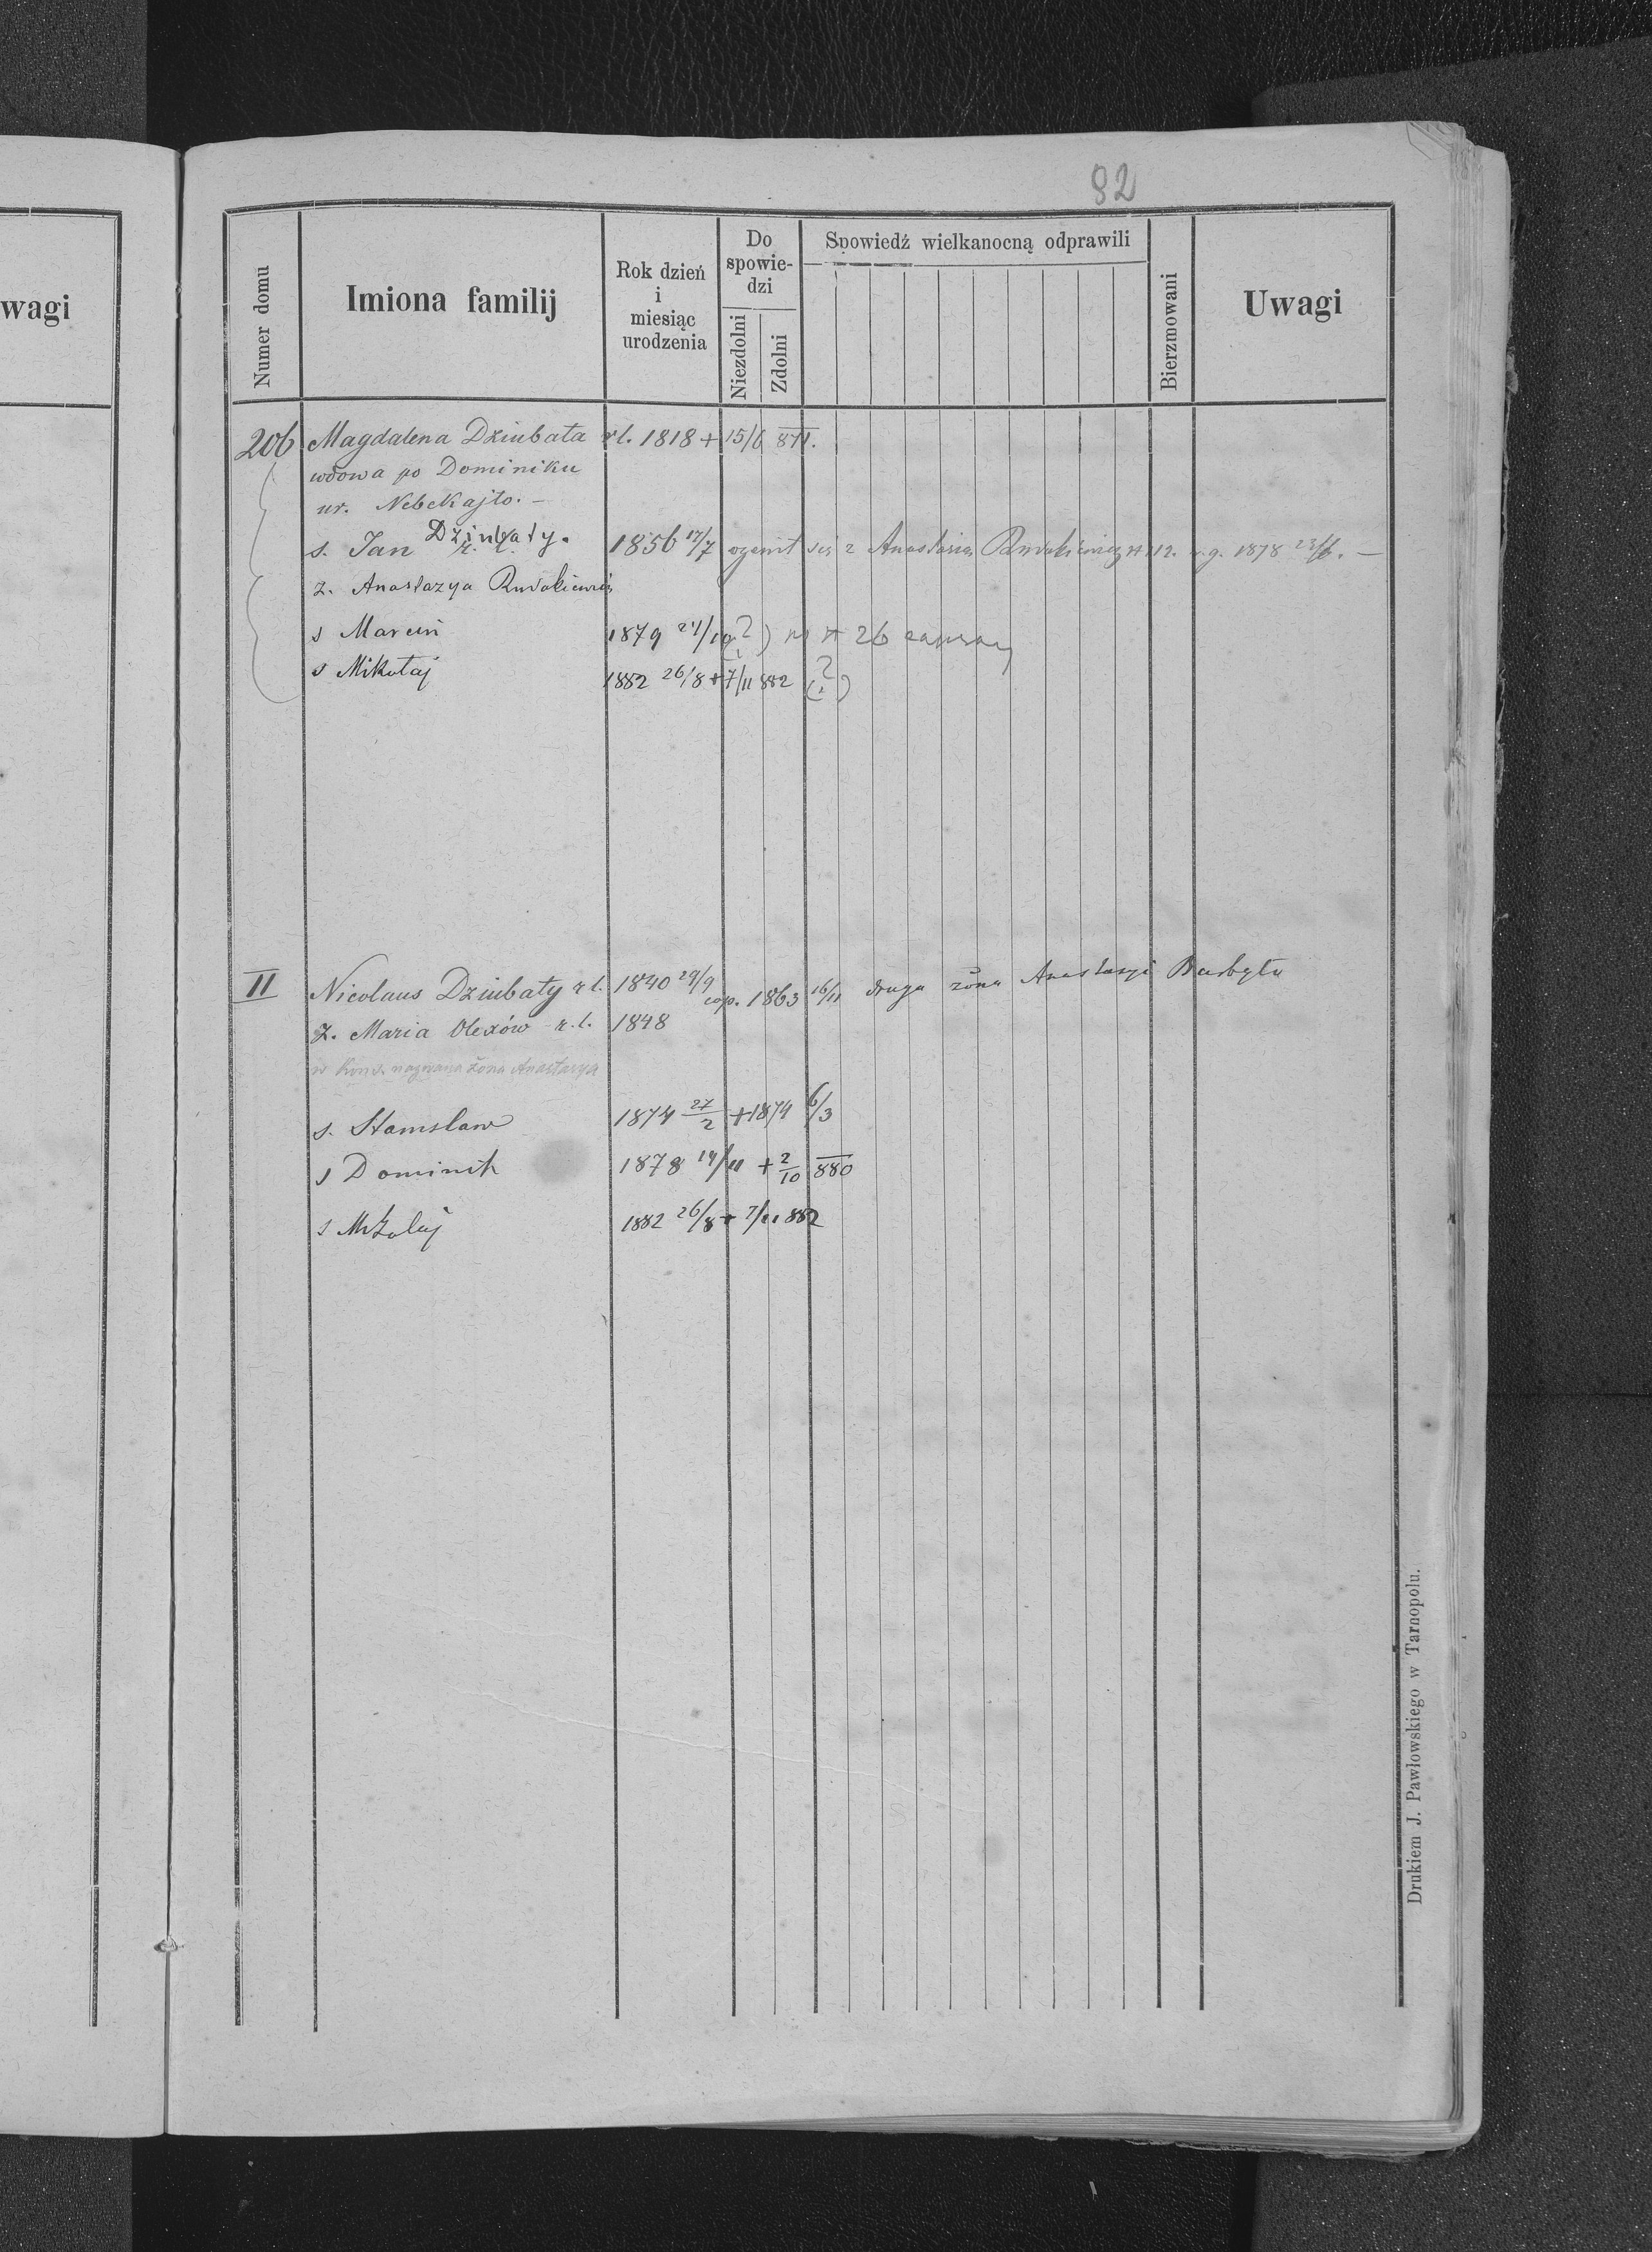 92
wagi
Numer domu
Imiona familij
Rok dzień
i
miesiąc
urodzenia
Do
spowie-
dzi
Niezdolni
Zdolni
Spowiedź wielkanocną odprawili
Bierzmowani
Uwagi
206 Magdalena Dziubata rl. 1818 + 15/6 871.
wdowa po Dominiku
ur. Nebekajło. —
s. Jan Dziubaty. r. l. 1856 17/7 ożenił się z Anastazią Rudakiewicz N 112. 1878 23/6. —
ż. Anastazya Rudakiewicz
s Marcin 1879 24/10 (?) N 26
s Mikołaj 1882 26/8 + 7/11 882 (?)
II Nicolaus Dziubaty r l. 1840 29/9 cop. 1863 16/11 druga żona Anastazyi
ż. Maria Olexów r. l. 1848
w Kons. nazwana żona Anastazya
s. Stanislaw 1874 27/2 + 1874 6/3
s Dominik 1878 14/11 + 2/10 880
s Mikołaj 1882 26/8 + 7/11 882
Drukiem J. Pawłowskiego w Tarnopolu.